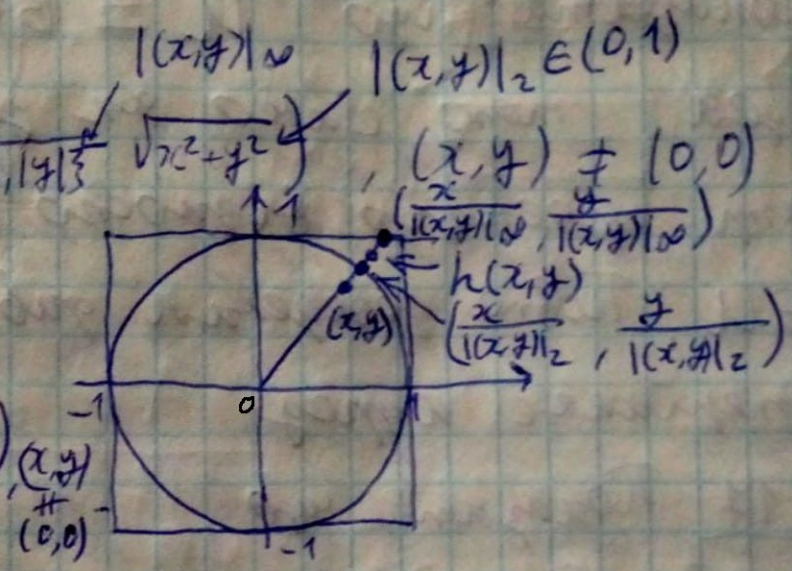 |(x,y)|∞ |(x,y)|₂ ∈ (0,1)
,|y|} √(x²+y²) ) , (x,y) ≠ (0,0)
1 (x/|(x,y)|∞ , y/|(x,y)|∞)
h(x,y)
(x,y) (x/|(x,y)|₂ , y/|(x,y)|₂)
-1 0 1
) ,(x,y)
≠
(0,0)
-1